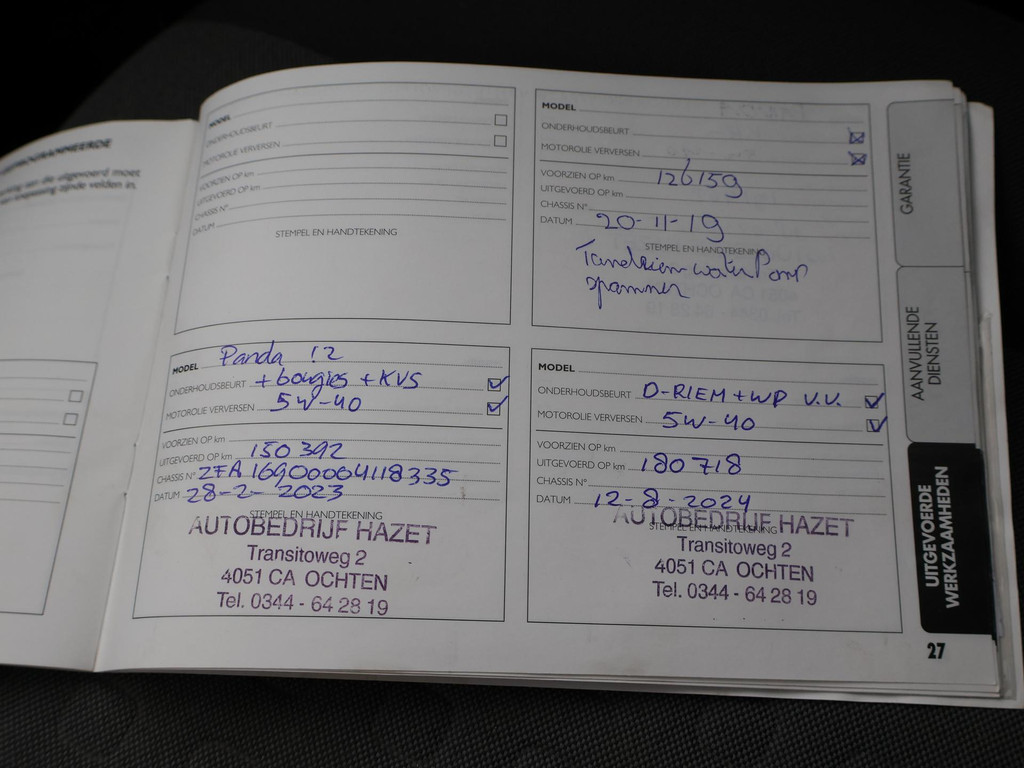 MODEL
ONDERHOUDSBEURT
MOTOROLIE VERVERSEN
VOORZIEN OP km
UITGEVOERD OP km
CHASSIS N°
DATUM
STEMPEL EN HANDTEKENING
MODEL
ONDERHOUDSBEURT
MOTOROLIE VERVERSEN
VOORZIEN OP km 126159
UITGEVOERD OP km
CHASSIS N°
DATUM 20-11-19
STEMPEL EN HANDTEKENING
Tandriem waterPomp
spanner
MODEL Panda 12
ONDERHOUDSBEURT + bougies + KVS
MOTOROLIE VERVERSEN 5W-40
VOORZIEN OP km
UITGEVOERD OP km 150392
CHASSIS N° ZFA 16900004118335
DATUM 28-2-2023
STEMPEL EN HANDTEKENING
AUTOBEDRIJF HAZET
Transitoweg 2
4051 CA OCHTEN
Tel. 0344 - 64 28 19
MODEL
ONDERHOUDSBEURT D-RIEM + WP V.V.
MOTOROLIE VERVERSEN 5W-40
VOORZIEN OP km
UITGEVOERD OP km 180718
CHASSIS N°
DATUM 12-8-2024
STEMPEL EN HANDTEKENING
AUTOBEDRIJF HAZET
Transitoweg 2
4051 CA OCHTEN
Tel. 0344 - 64 28 19
GARANTIE
AANVULLENDE
DIENSTEN
UITGEVOERDE
WERKZAAMHEDEN
27